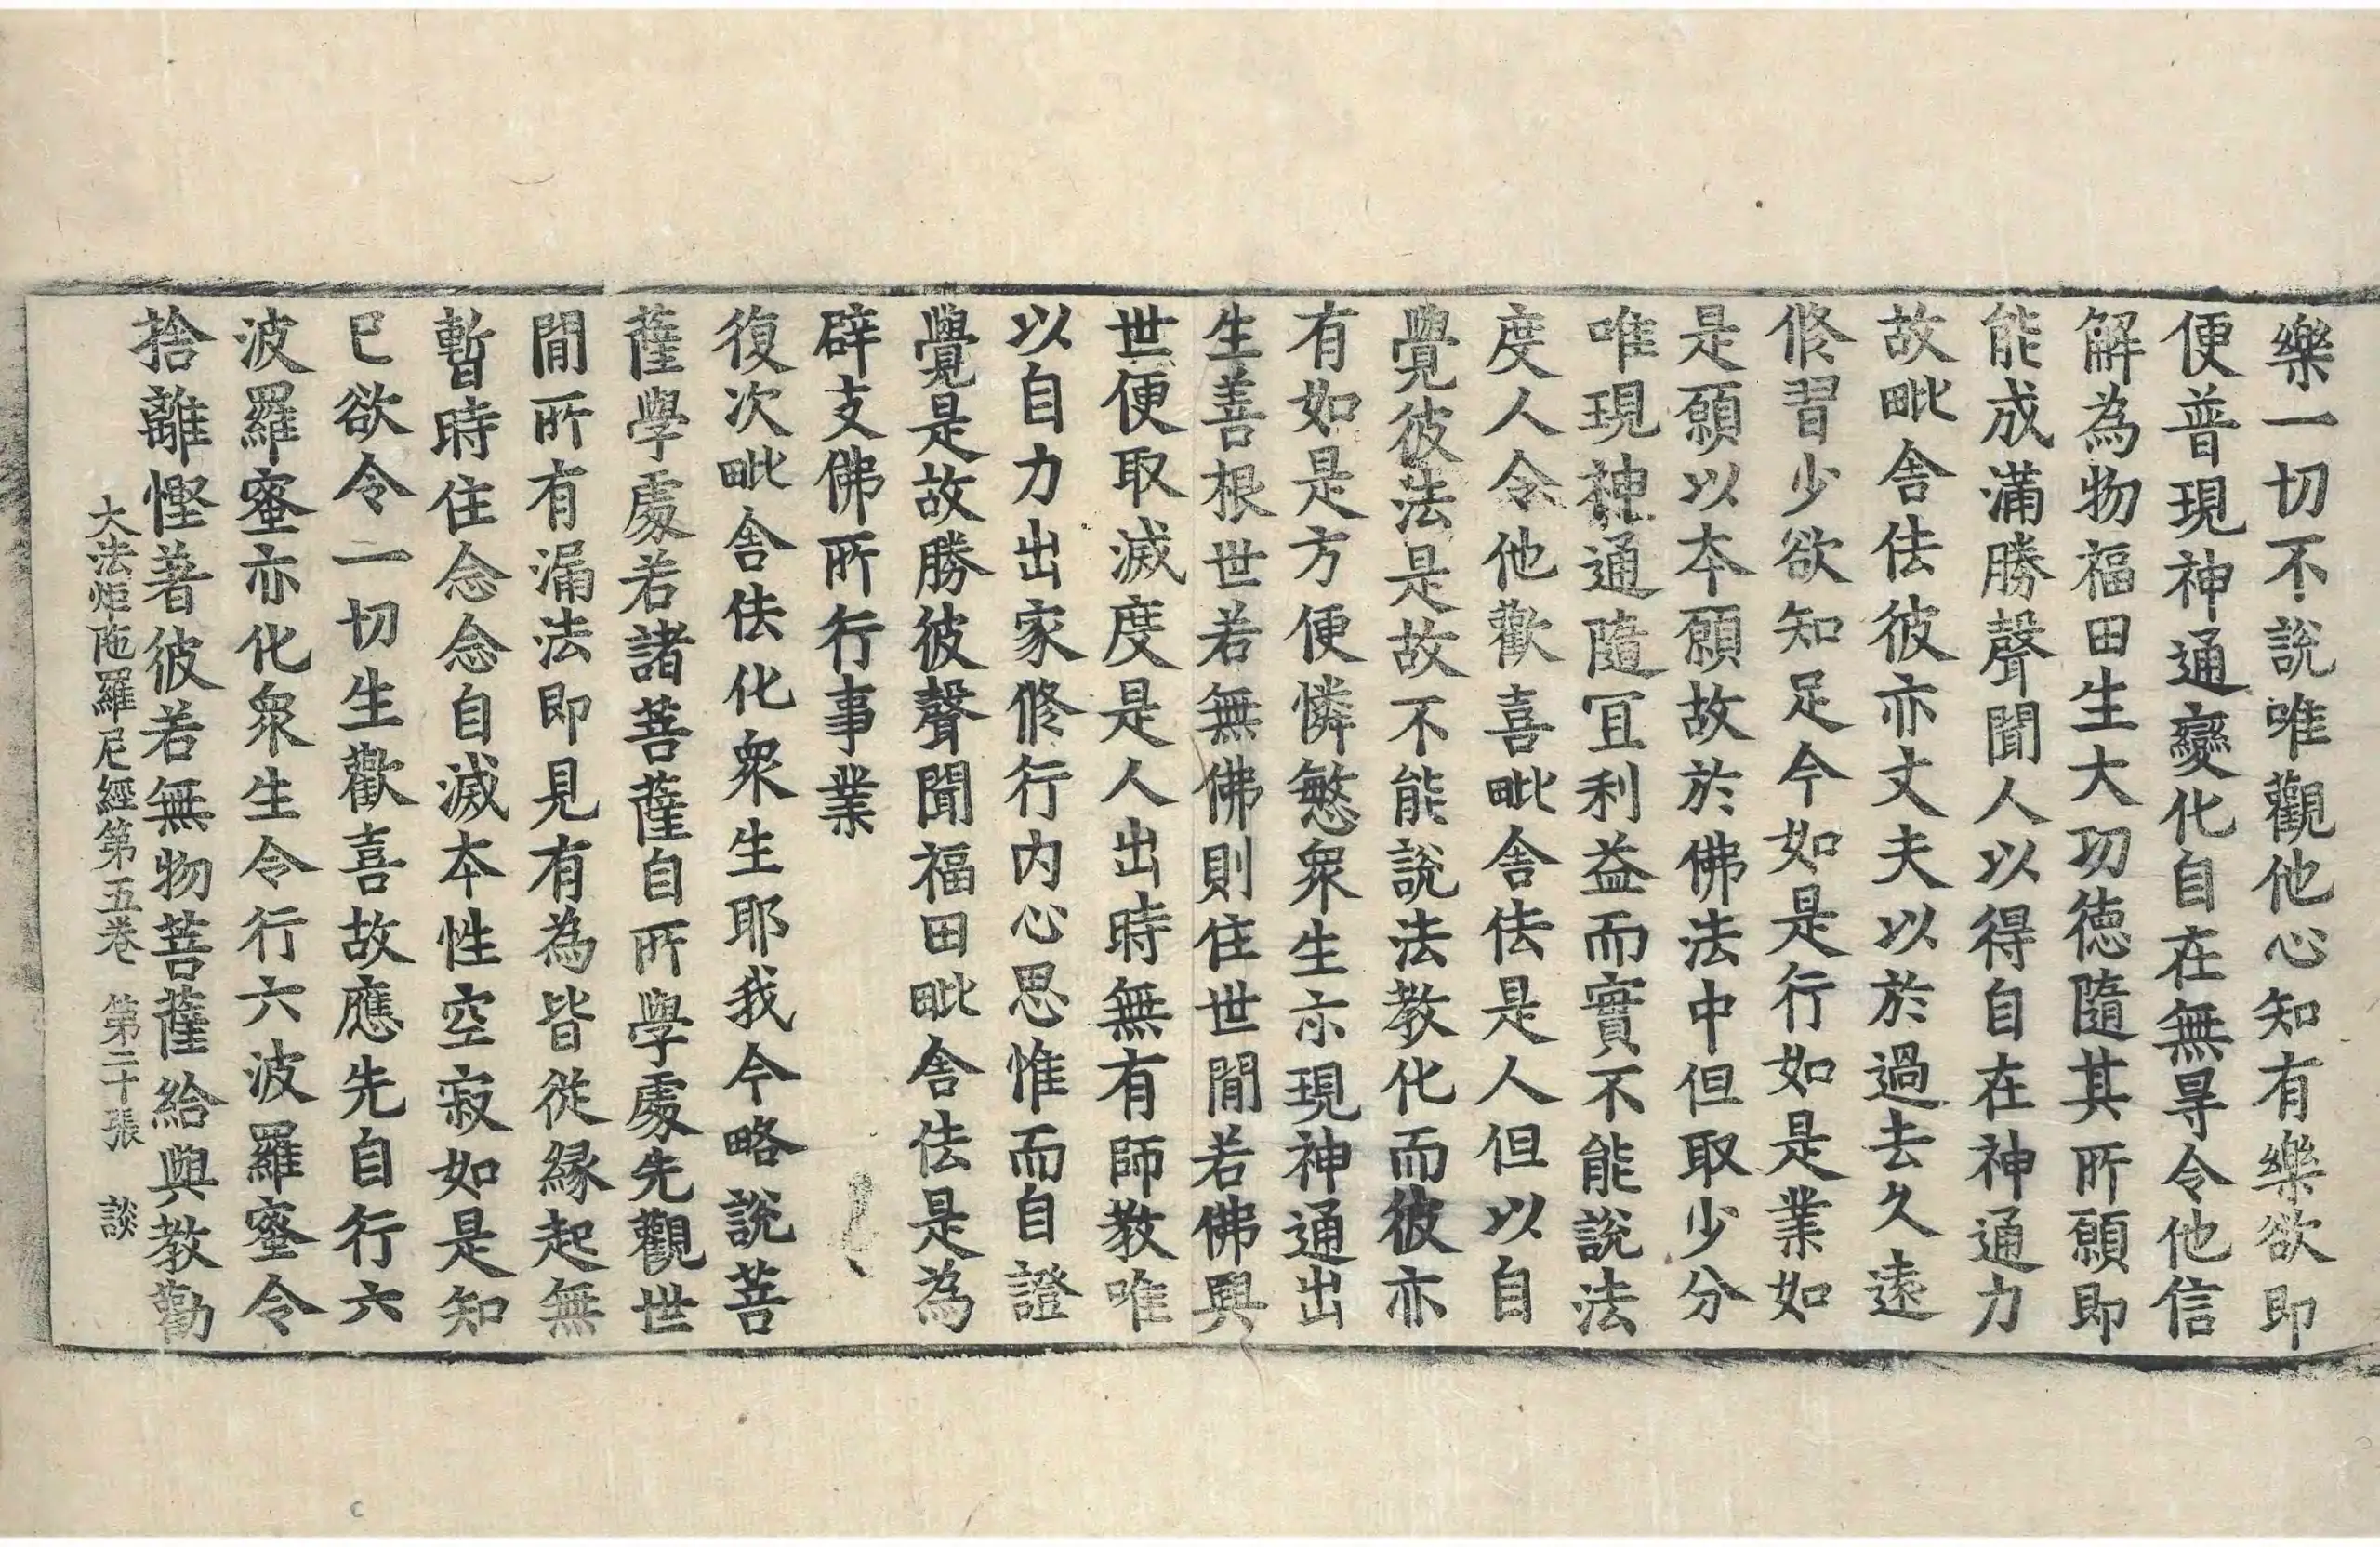 樂一切不說唯觀他心知有樂欲即
便普現神通變化自在無㝵令他信
解為物福田生大功徳隨其所願即
能成滿勝聲聞人以得自在神通力
故毗舍佉彼亦丈夫以於過去久遠
修習少欲知足今如是行如是業如
是願以本願故於佛法中但取少分
唯現神通隨冝利益而實不能說法
度人令他歡喜毗舍佉是人但以自
覺彼法是故不能說法教化而彼亦
有如是方便憐慜衆生亦現神通出
生善根世若無佛則住世間若佛興
世便取滅度是人出時無有師教唯
以自力出家修行内心思惟而自證
覺是故勝彼聲聞福田毗舍佉是為
辟支佛所行事業
復次毗舍佉化衆生耶我今略說菩
薩學處若諸菩薩自所學處先觀世
間所有漏法即見有為皆從縁起無
暫時住念念自滅本性空寂如是知
已欲令一切生歡喜故應先自行六
波羅蜜亦化衆生令行六波羅蜜令
捨離慳著彼若無物菩薩給與教勸
大法炬陁羅尼經第五卷 第二十張 談